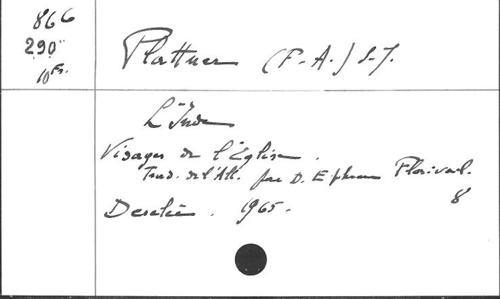 866
290
10 Fr.
Plattner (F.-A.) S.J.
L'Inde
Visages de l'Église.
Trad. de l'All. par D. Ephrem Florival.
8
Desclée. 1965.